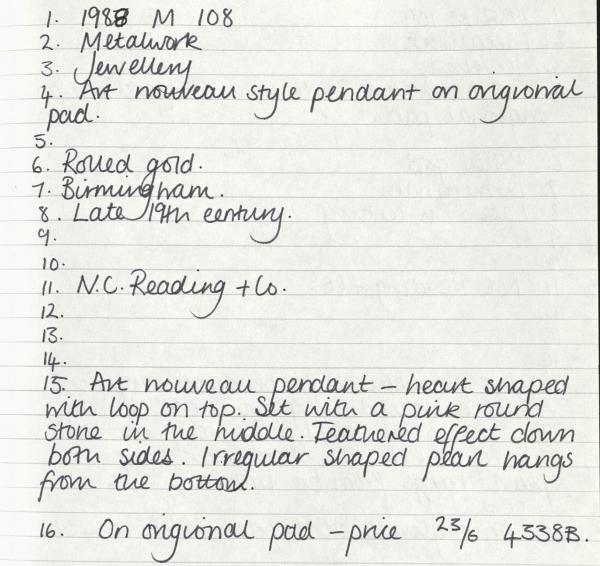 1. 1988 M 108
2. Metalwork
3. Jewellery
4. Art nouveau style pendant on origional
pad.
5.
6. Rolled gold.
7. Birmingham.
8. Late 19th century.
9.
10.
11. N.C. Reading + Co.
12.
13.
14.
15. Art nouveau pendant – heart shaped
with loop on top. Set with a pink round
stone in the middle. Feathered effect down
both sides. Irregular shaped pearl hangs
from the bottom.
16. On origional pad – price 23/6 4338B.